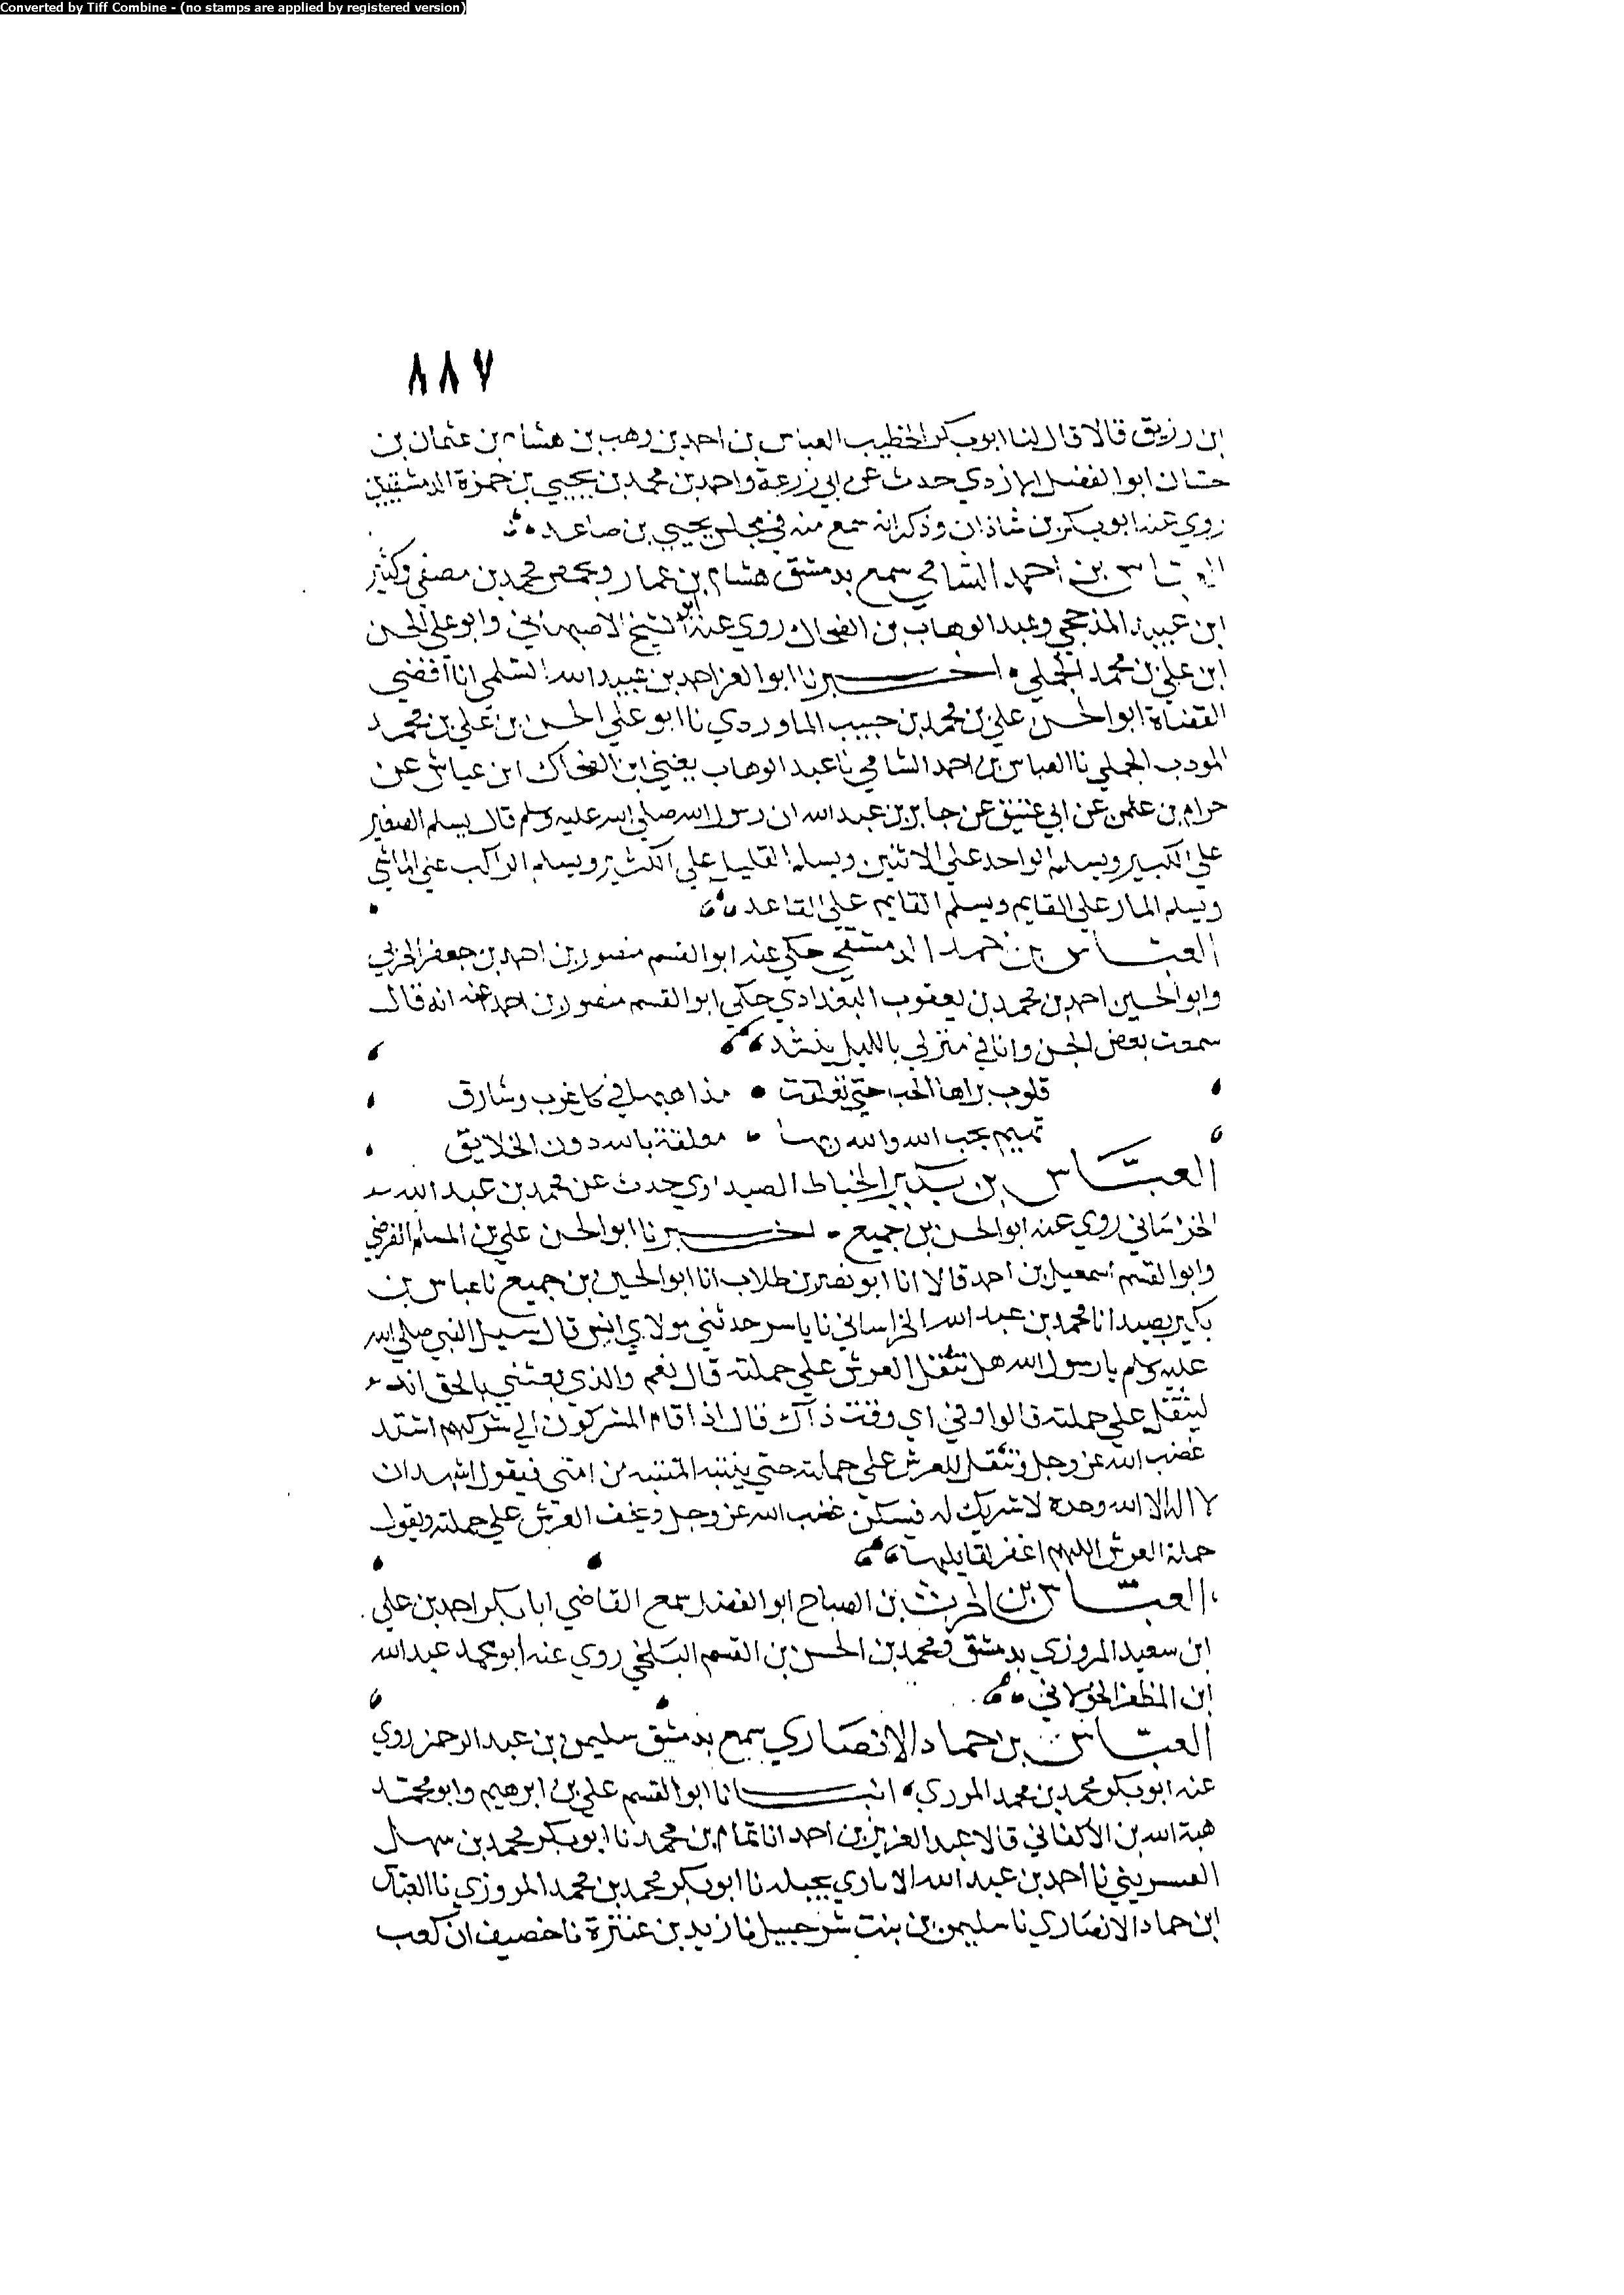 Converted by Tiff Combine - (no stamps are applied by registered version)
٨٨٧
ابن رزيق قالا قال لنا ابو بكر الخطيب العباس بن احمد بن وهب بن هشام بن عثمان بن
حسان ابو الفضل الازدي حدث عن ابي زرعة واحمد بن محمد بن يحيي بن حمزة الدمشقيين
روي عنه ابو بكر بن شاذان وذكر انه سمع منه في مجلس يحيي بن صاعد
العباس بن احمد الشامي سمع بدمشق هشام بن عمار وبحمص محمد بن مصفي وكثير
ابن عبيد المذحجي وعبد الوهاب بن الضحاك روي عنه ابو الشيخ الاصبهاني وابو علي الحسن
ابن علي بن محمد الجملي اخبرنا ابو العز احمد بن عبيد الله السلمي انا اقضي
القضاة ابو الحسن علي بن محمد بن حبيب الماوردي نا ابو علي الحسن بن علي بن محمد
المودب الجملي نا العباس بن احمد الشامي نا عبد الوهاب يعني ابن الضحاك ابن عياش عن
حرام بن عثمن عن ابي عتيق عن جابر بن عبد الله ان رسول الله صلي الله عليه وسلم قال يسلم الصغير
علي الكبير ويسلم الواحد علي الاثنين ويسلم القليل علي الكثير ويسلم الراكب علي الماشي
ويسلم المار علي القايم ويسلم القايم علي القاعد
العباس بن احمد الدمشقي حكي عنه ابو القسم منصور بن احمد بن جعفر الحربي
وابو الحسين احمد بن محمد بن يعقوب البغدادي حكي ابو القسم منصور بن احمد عنه انه قال
سمعت بعض الجن وانا في منزلي بالليل ينشد
قلوب براها الحب حتي تعلقت مذاهبها في كل غرب وشارق
تهيم بحب الله والله ربها معلقة بالله دون الخلايق
العباس بن بكير الخياط الصيداوي حدث عن محمد بن عبد الله
الخراساني روي عنه ابو الحسن بن جميع اخبرنا ابو الحسن علي بن المسلم الفرضي
وابو القسم اسمعيل بن احمد قالا انا ابو نصر بن طلاب انا ابو الحسين بن جميع نا عباس بن
بكير بصيدا نا محمد بن عبد الله الخراساني نا ياسر حدثني مولاي انس قال سيل النبي صلي الله
عليه وسلم يا رسول الله هل تثقل العرش علي حملته قال نعم والذي بعثني بالحق انه
ليثقل علي حملته قالوا وفي اي وقت ذاك قال اذا قام المشركون الي شركهم اشتد
غضب الله عز وجل وتثقل للعرش علي حملته حتي ينتبه المنتبه من امتي فيقول اشهد ان
لا اله الا الله وحده لا شريك له فيسكن غضب الله عز وجل ويخف العرش علي حملته ويقول
حملة العرش اللهم اغفر لقايلها
العباس بن الحرث بن الصباح ابو الفضل سمع القاضي ابا بكر احمد بن علي
ابن سعيد المروزي بدمشق ومحمد بن الحسن بن القسم البلخي روي عنه ابو محمد عبد الله
ابن المظفر الخولاني
العباس بن حماد الانصاري سمع بدمشق سليمن بن عبد الرحمن روي
عنه ابو بكر محمد بن محمد المروزي انبانا ابو القسم علي بن ابرهيم وابو محمد
هبة الله بن الاكفاني قالا عبد العزيز بن احمد انا تمام بن محمد نا ابو بكر محمد بن سهل
نا احمد بن عبد الله بجبله نا ابو بكر محمد بن محمد المروزي نا العباس
ابن حماد الانصاري نا سليمن بن بنت شرحبيل نا زيد بن عنترة نا خصيف ان كعب